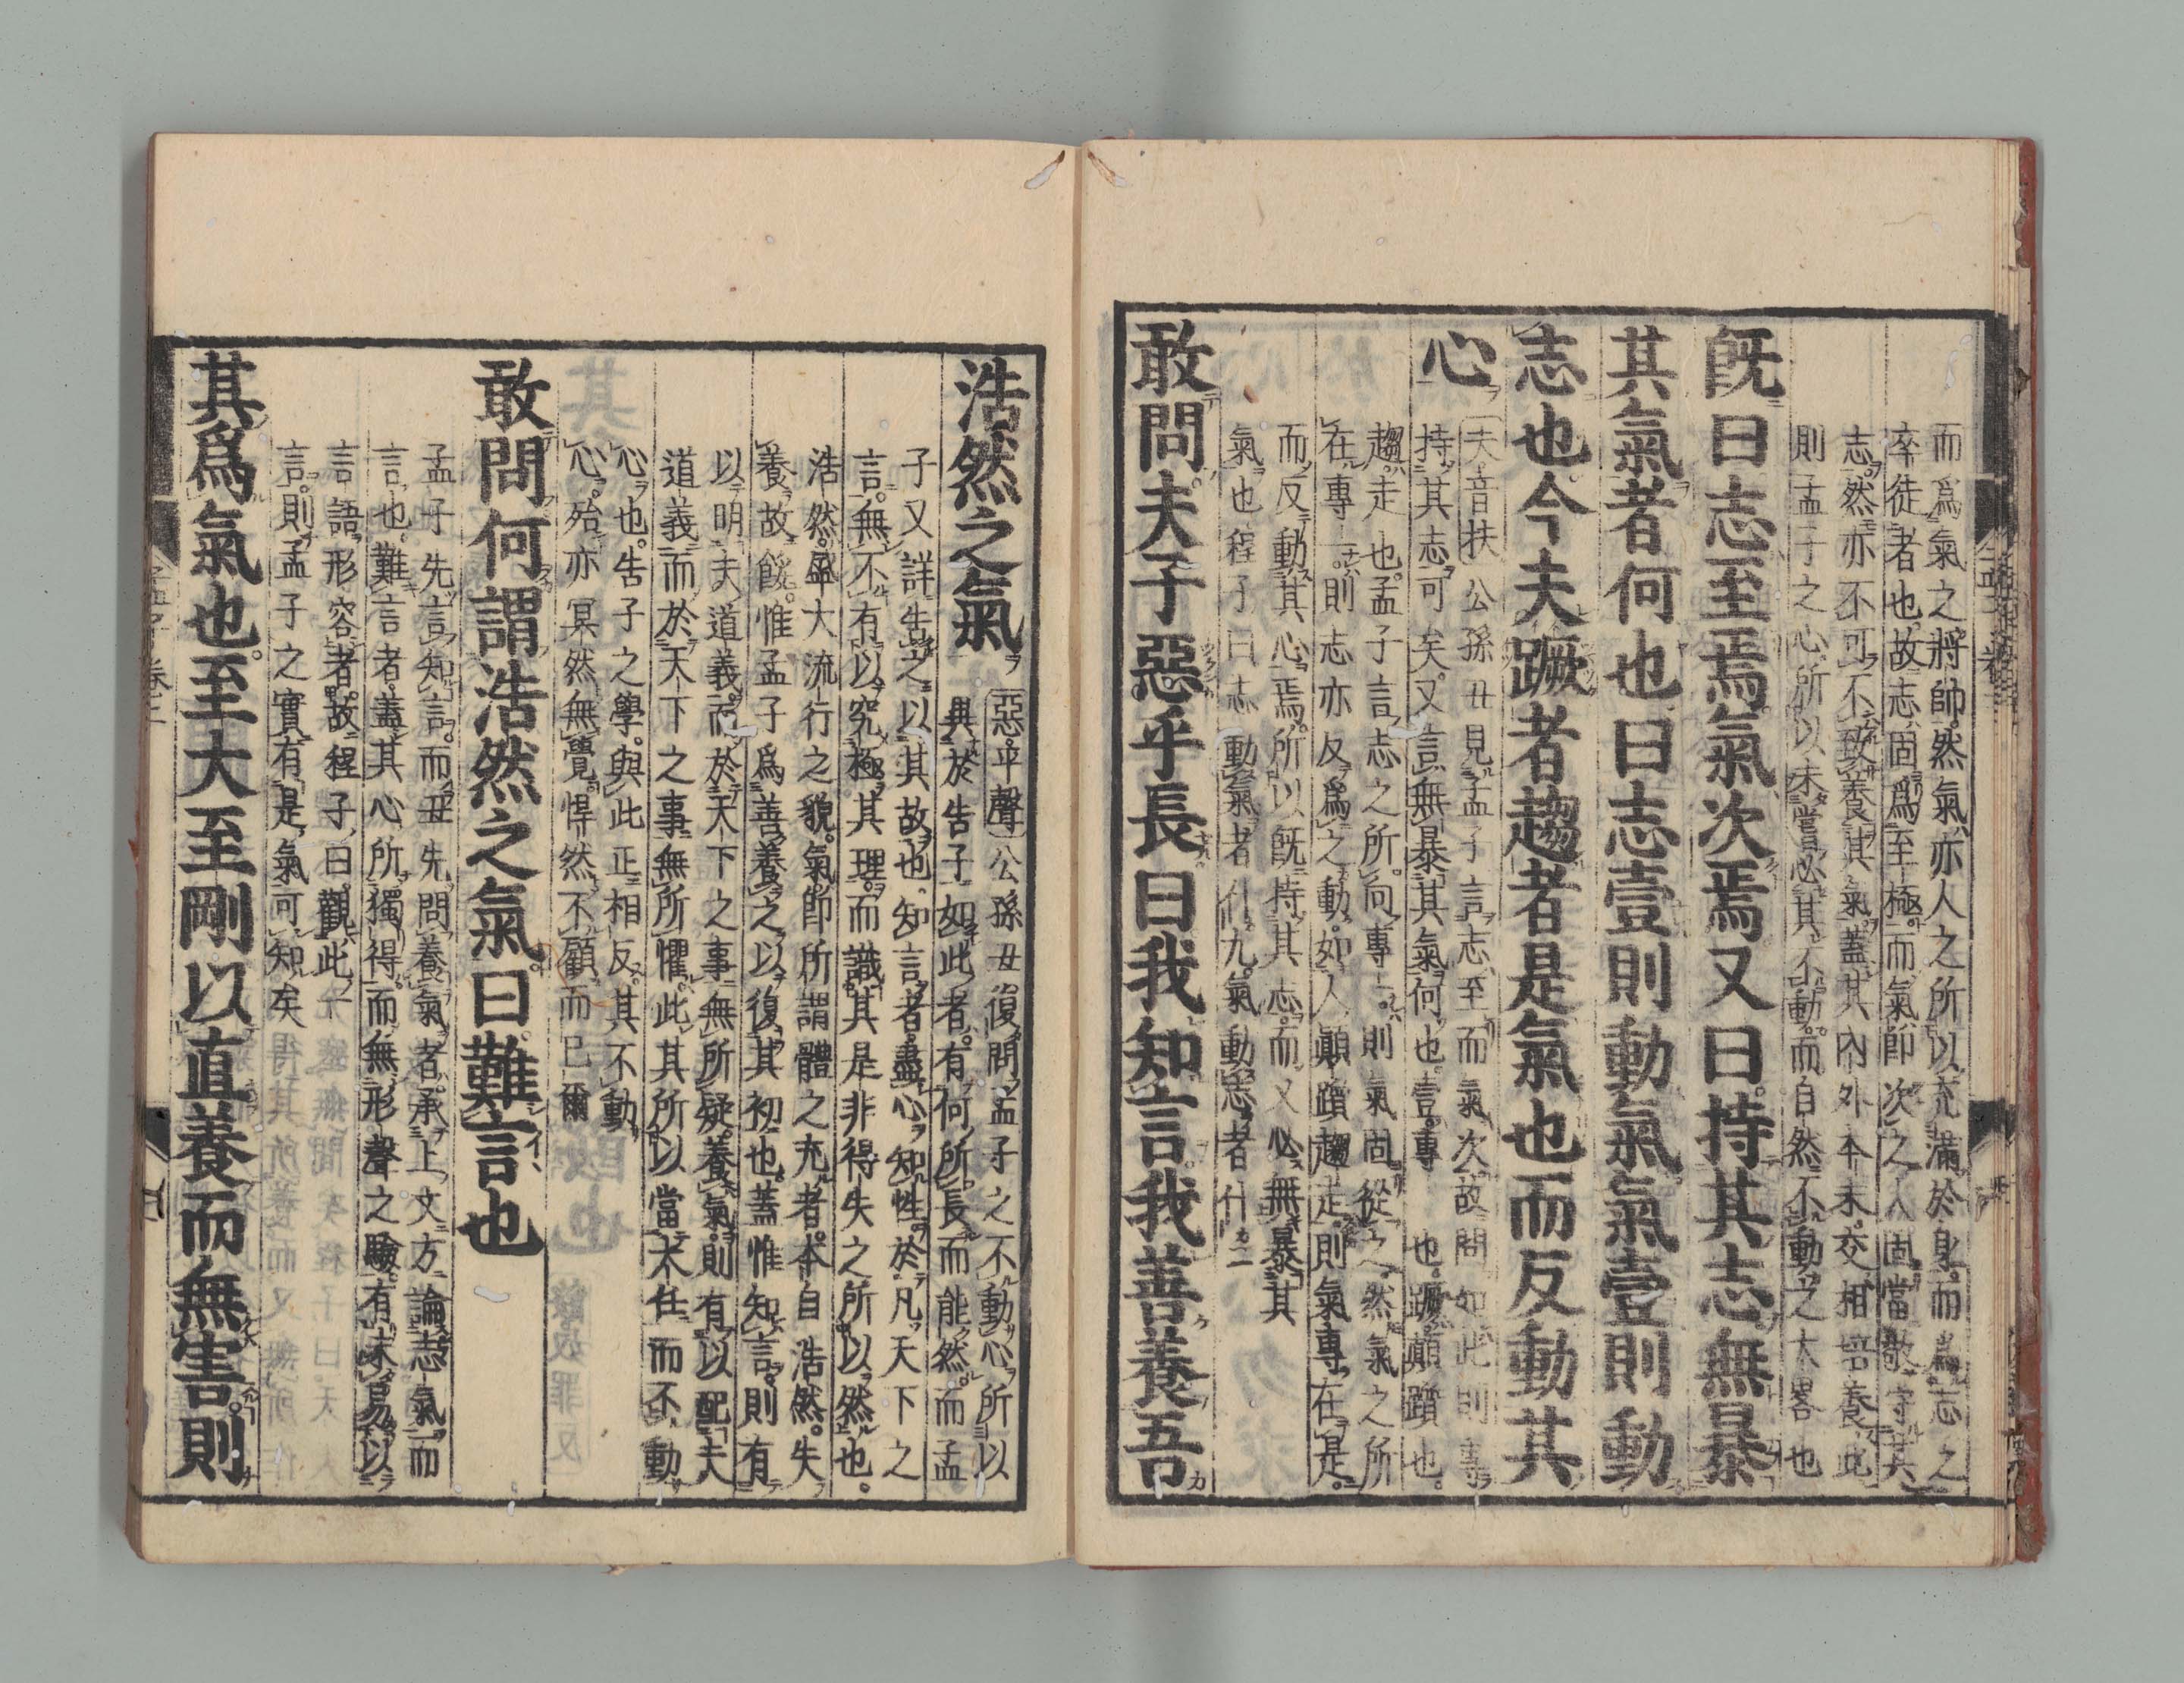 而爲氣之將帥。然氣亦人之所以充滿於身。而爲志之
卒徒者也。故志固爲至極。而氣即次之。人固當敬守其
志。然亦不可不致養其氣。蓋其內外本末。交相培養。此
則孟子之心所以未嘗必其不動。而自然不動之大畧也
既曰志至焉氣次焉又曰。持其志無暴
其氣者何也曰志壹則動氣。氣壹則動
志也今夫蹶者趨者是氣也而反動其
心
夫音扶 公孫丑見孟子言志至而氣次。故問如此則專
持其志可矣。又言無暴其氣何也。壹。專也。蹶。顚躓也。
趨。走也。孟子言志之所向專一。則氣固從之。然氣之所
在專一。則志亦反爲之動。如人顚躓趨走。則氣專在是。
而反動其心焉。所以既持其志。而又必無暴其
氣也程子曰志動氣者什九。氣動志者什一
敢問夫子惡乎長曰我知言。我善養吾
浩然之氣
惡。平聲 公孫丑復問孟子之不動心。所以
異於告子如此者。有何所長而能然。而孟
子又詳告之以其故也。知言者。盡心知性。於凡天下之
言。無不有以究極其理。而識其是非得失之所以然也。
浩然。盛大流行之貌。氣即所謂體之充者。本自浩然。失
養故餒。惟孟子爲善養之以復其初也。蓋惟知言。則有
以明夫道義。而於天下之事無所疑。養氣。則有以配夫
道義。而於天下之事無所懼。此其所以當大任而不動
心也。告子之學。與此正相反。其不動
心。殆亦冥然無覺。悍然不顧而已爾
敢問何謂浩然之氣。曰。難言也
孟子先言知言。而丑先問養氣者。承上文方論志氣而
言也。難言者。蓋其心所獨得。而無形聲之驗。有未易以
言語形容者。故程子曰。觀此一
言。則孟子之實有是氣可知矣
其爲氣也。至大至剛以直養而無害。則
孟子卷三